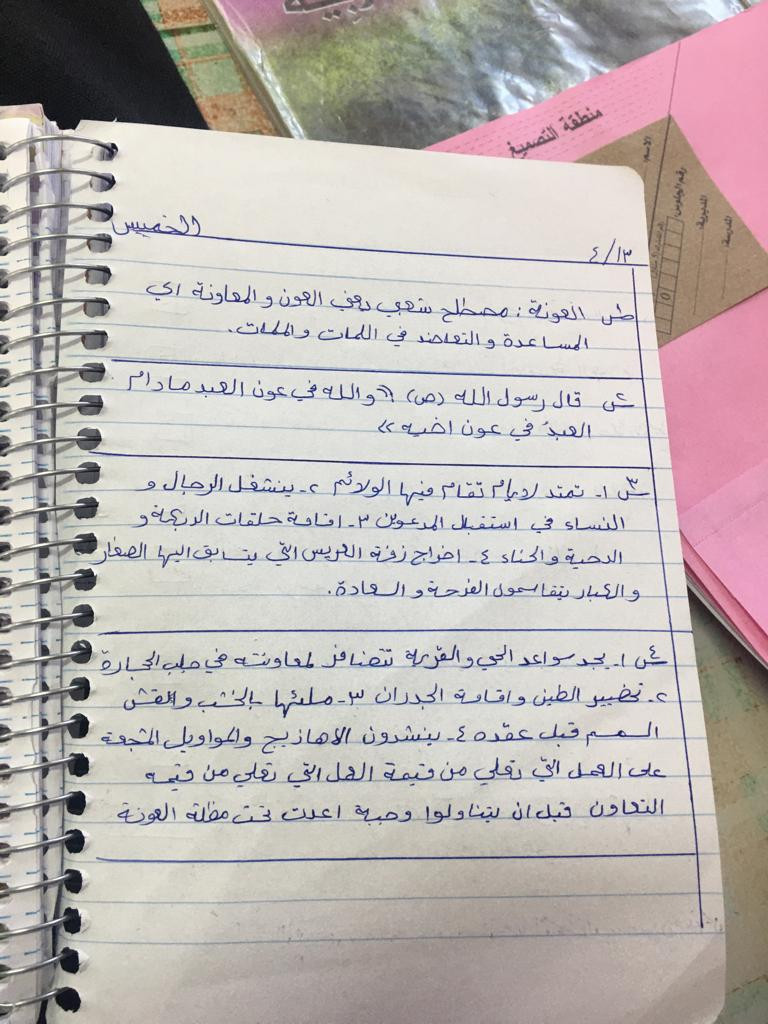 منطقة التصميغ
الاسم:
رقم الجلوس
المديرية:
المدرسة:
الخميس
٤/١٣
س١ العونة: مصطلح شعبي يعني العون والمعاونة اي
المساعدة والتعاضد في اللمات والملمات.
س٢ قال رسول الله (ص) «والله في عون العبد مادام
العبدُ في عون اخيه»
س٣ ١- تمتد لايام تقام فيها الولائم ٢- ينشغل الرجال و
النساء في استقبل المدعوين ٣- اقامة حلقات الدبكة و
الدحية والحناء ٤- اخراج زفة العريس التي يتسابق اليها الصغار
والكبار يتقاسمون الفرحة والسعادة.
س٤ ١. يجد سواعد الحي والقرية تتضافر لمعاونته في جلب الحجارة
٢- تحضير الطين واقامة الجدران ٣- ملئها بالخشب والقش
قبل عقده ٤- ينشدون الاهازيج والمواويل المشجعة
على العمل التي تعلي من قيمة العمل التي تعلي من قيمه
التعاون قبل ان يتناولوا وجبة اعدت تحت مظلة العونة